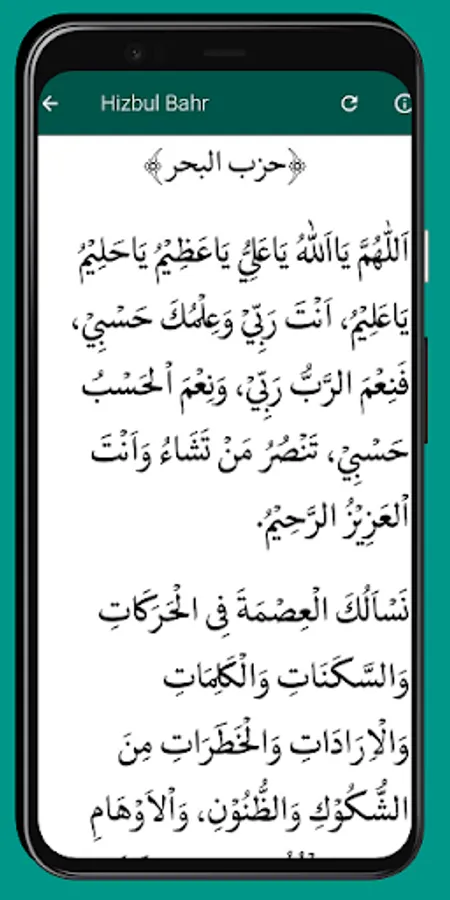 Hizbul Bahr
﴿حزب البحر﴾
اَللّٰهُمَّ يَااَللّٰهُ يَاعَلِيُّ يَاعَظِيْمُ يَاحَلِيْمُ
يَاعَلِيْمُ، اَنْتَ رَبِّيْ وَعِلْمُكَ حَسْبِيْ،
فَنِعْمَ الرَّبُّ رَبِّيْ، وَنِعْمَ الْحَسْبُ
حَسْبِيْ، تَنْصُرُ مَنْ تَشَاءُ وَاَنْتَ
الْعَزِيْزُ الرَّحِيْمُ.
نَسْاَلُكَ الْعِصْمَةَ فِى الْحَرَكَاتِ
وَالسَّكَنَاتِ وَالْكَلِمَاتِ
وَالْاِرَادَاتِ وَالْخَطَرَاتِ مِنَ
الشُّكُوْكِ وَالظُّنُوْنِ، وَالْاَوْهَامِ